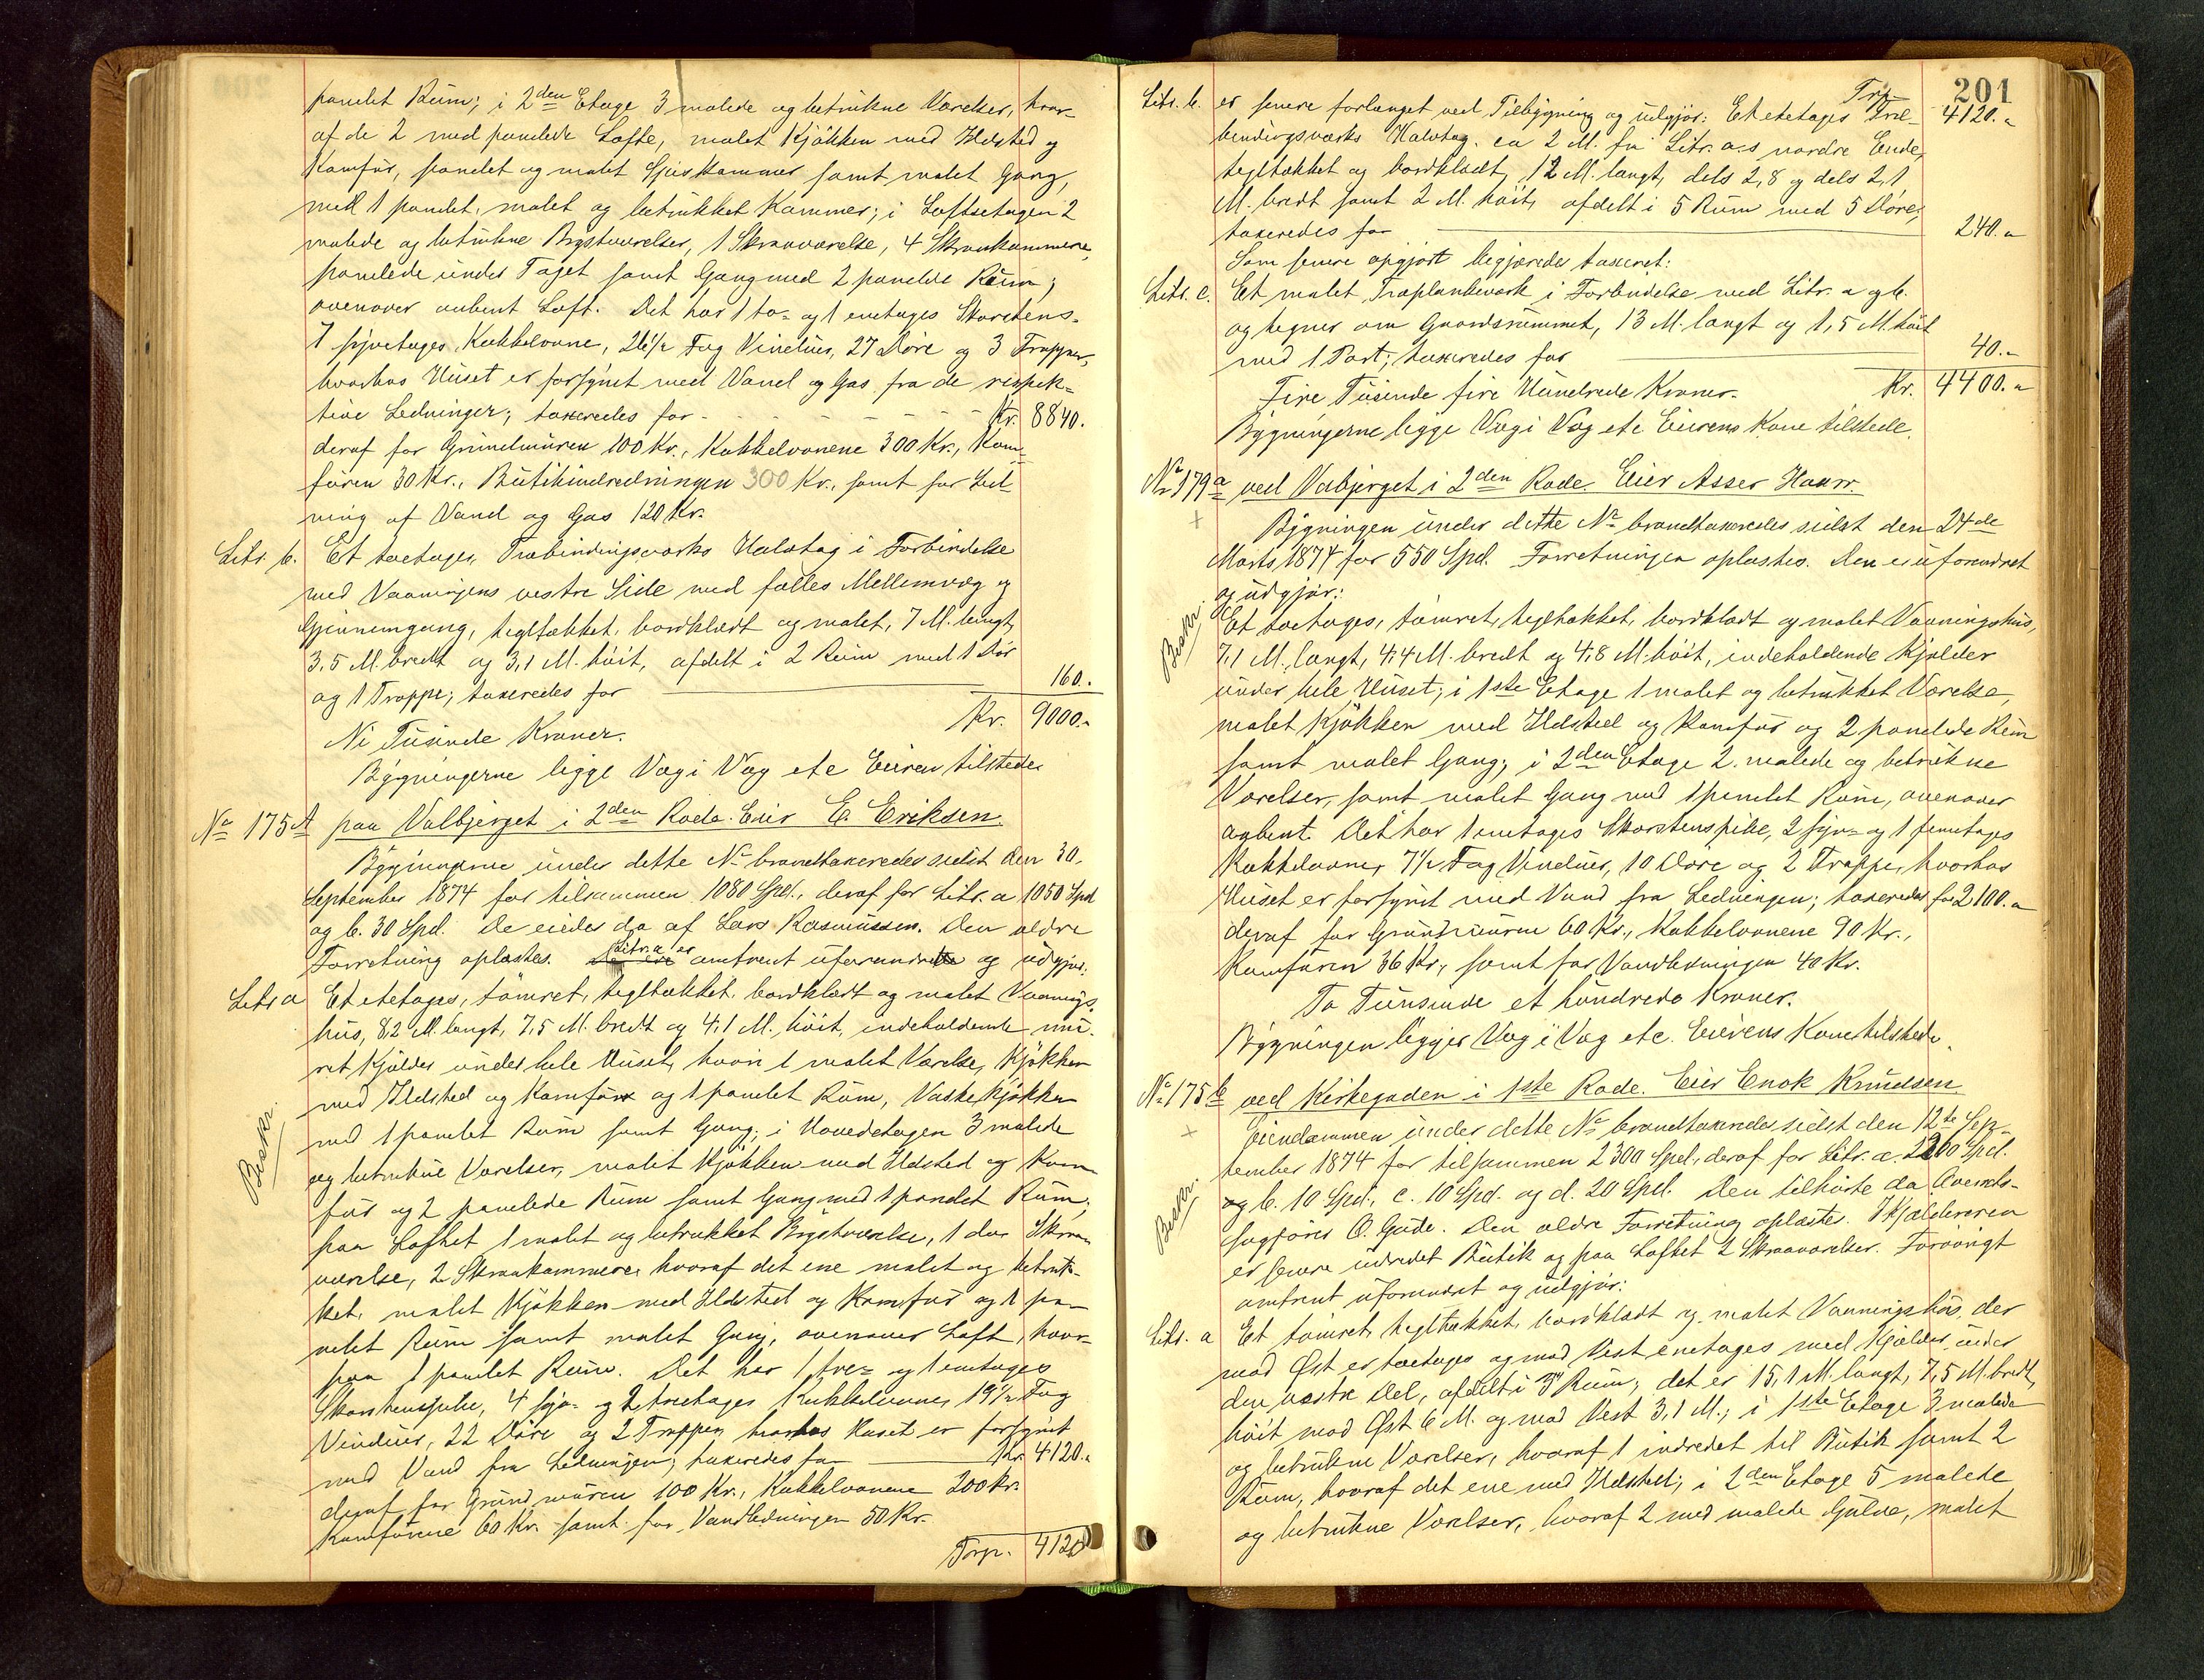 panelet Rum; i 2den Etage 3 malede og betrukne Værelser, hvor-
af de 2 med panelede Lofte, malet Kjøkken med Ildsted og
Komfur, panelet og malet Spiskammer samt malet Gang,
med 1 panelet, malet og betrukket Kammer; i Loftsetagen 2
malede og betrukne Brystværelser, 1 Skraaværelse, 4 Skraakammere,
panelede under Taget samt Gang med 2 panelede Rum;
ovenover aabent Loft. Det har 1 to- og 1 enetages Skorstens-
7 fyretages Kakkelovne, 26 1/2 Fag Vinduer, 27 Døre og 3 Trapper,
hvorhos Huset er forsynet med Vand og Gas fra de respek-
tive Ledninger; taxeredes for - - - - - - - Kr. 8840.
deraf for Grundmuren 100 Kr., Kakkelovnene 300 Kr., Kom-
furen 30 Kr., Butikindredningen 300 Kr., samt for Led-
ning af Vand og Gas 120 Kr.
Litr. b. Et toetages, Træbindingsværks Halvtag i Forbindelse
med Vaaningens vestre Side med fælles Mellemvæg og
Gjennemgang, tegltækket, bordklædt og malet, 7 M. langt,
3,5 M. bredt og 3,1 M. høit, afdelt i 2 Rum med 1 Dør
og 1 Trappe; taxeredes for 160.
Ni Tusinde Kroner. Kr. 9000.-
Bygningerne ligge Væg i Væg etc Eieren tilstede
No 175 A paa Valbjerget i 2den Rode. Eier E. Eriksen.
Bygningerne under dette No brandtaxeredes sidst den 30.
September 1874 for tilsammen 1080 Spd., deraf for Litr. a 1050 Spd
og b. 30 Spd. De eiedes da af Lars Rasmussen. Den ældre
Forretning oplæstes. Litr. a er omtrent uforandret og udgjør:
Litr a Et etetages, tømret, tegltækket, bordklædt og malet Vaanings-
hus, 8,2 M. langt, 7,5 M. bredt og 4,1 M. høit, indeholdende mu-
ret Kjælder under hele Huset, hvori 1 malet Værelse, Kjøkken
med Ildsted og Komfur og 1 panelet Rum, Vaskekjøkken
Beskr.
med 1 panelet Rum samt Gang; i Hovedetagen 3 malede
og betrukne Værelser, malet Kjøkken med Ildsted og Kom-
fur og 2 panelede Rum samt Gang med 1 panelet Rum;
paa Loftet 1 malet og betrukket Brystværelse, 1 do Skraa-
værelse, 2 Skraakammere hvoraf det ene malet og betruk-
ket, malet Kjøkken med Ildsted og Komfur og 1 pa-
nelet Rum samt malet Gang, ovenover Loft, hvor-
paa 1 panelet Rum. Det har 1 tre- og 1 enetages
Skorstenspibe, 4 fyr- og 2 treetages Kakkelovne, 19 1/2 Fag
Vinduer, 22 Døre og 2 Trapper, hvorhos Huset er forsynet
med Vand fra Ledningen; taxeredes for Kr. 4120.-
deraf for Grundmuren 100 Kr., Kakkelovnene 200 Kr.
Komfurene 60 Kr. samt for Vandledningen 50 Kr.
Trp. 4120
201
Trp. 4120.-
Litr. b. er senere forlænget ved Tilbygning og udgjør: Et etetages Træ-
bindingsværks Halvtag. ca 2 M. fra Litr. a.s nordre Ende,
tegltækket og bordklædt, 12 M. langt, dels 2,8 og dels 2,1
M. bredt samt 2 M. høit, afdelt i 5 Rum med 5 Døre;
taxeredes for 240.-
Som senere opgjørt begjæredes taxeret:
Litr. c. Et malet Træplankeværk i Forbindelse med Litr. a og b.
og hegner om Gaardsrummet, 13 M. langt og 1,5 M. høit
med 1 Port; taxeredes for 40.-
Fire Tusinde fire Hundrede Kroner. Kr. 4400.-
Bygningerne ligge Væg i Væg etc Eierens Kone tilstede.
No 179 a ved Valbjerget i 2den Rode. Eier Asser Haarr.
Bygningen under dette No brandtaxeredes sidst den 24de
Marts 1874 for 550 Spd. Forretningen oplæstes. Den er uforandret
og udgjør:
Beskr.
Et toetages, tømret, tegltækket, bordklædt og malet Vaaningshus,
7,1 M. langt, 4,4 M. bredt og 4,8 M. høit, indeholdende Kjælder
under hele Huset; i 1ste Etage 1 malet og betrukket Værelse,
malet Kjøkken med Ildsted og Komfur og 2 panelede Rum
samt malet Gang; i 2den Etage 2 malede og betrukne
Værelser, samt malet Gang med 1 panelet Rum, ovenover
aabent. Det har 1 enetages Skorstenspibe, 2 fyr- og 1 femetages
Kakkelovne, 7 1/2 Fag Vinduer, 10 Døre og 2 Trapper, hvorhos
Huset er forsynet med Vand fra Ledningen; taxeredes for 2100.-
deraf for Grundmuren 60 Kr., Kakkelovnene 90 Kr.,
Komfuren 36 Kr., samt for Vandledningen 40 Kr.
To Tusinde et hundrede Kroner.
Bygningen ligger Væg i Væg etc. Eierens Kone tilstede.
No 175 b ved Kirkegaden i 1ste Rode. Eier Enok Knudsen
Eiendommen under dette No brandtaxeredes sidst den 12te Sep-
tember 1874 for tilsammen 2300 Spd., deraf for Litr. a. 2260 Spd.
Beskr.
og b. 10 Spd., c. 10 Spd. og d. 20 Spd. Den tilhørte da Overrets-
sagfører O. Gude. Den ældre Forretning oplæstes. I Kjælderen
er senere indredet Butik og paa Loftet 2 Skraaværelser. Forøvrigt
omtrent uforandret og udgjør:
Litr. a Et tømret, tegltækket, bordklædt og malet Vaaningshus, der
mod Øst er toetages og mod Vest enetages med Kjælder under
den vestre Del, afdelt i 3 Rum; det er 15,1 M. langt, 7,5 M. bredt,
høit mod Øst 6 M. og mod Vest 3,1 M.; i 1ste Etage 3 malede
og betrukne Værelser, hvoraf 1 indredet til Butik samt 2
Rum, hvoraf det ene med Ildsted; i 2den Etage 5 malede
og betrukne Værelser, hvoraf 2 med malede Gulve, malet